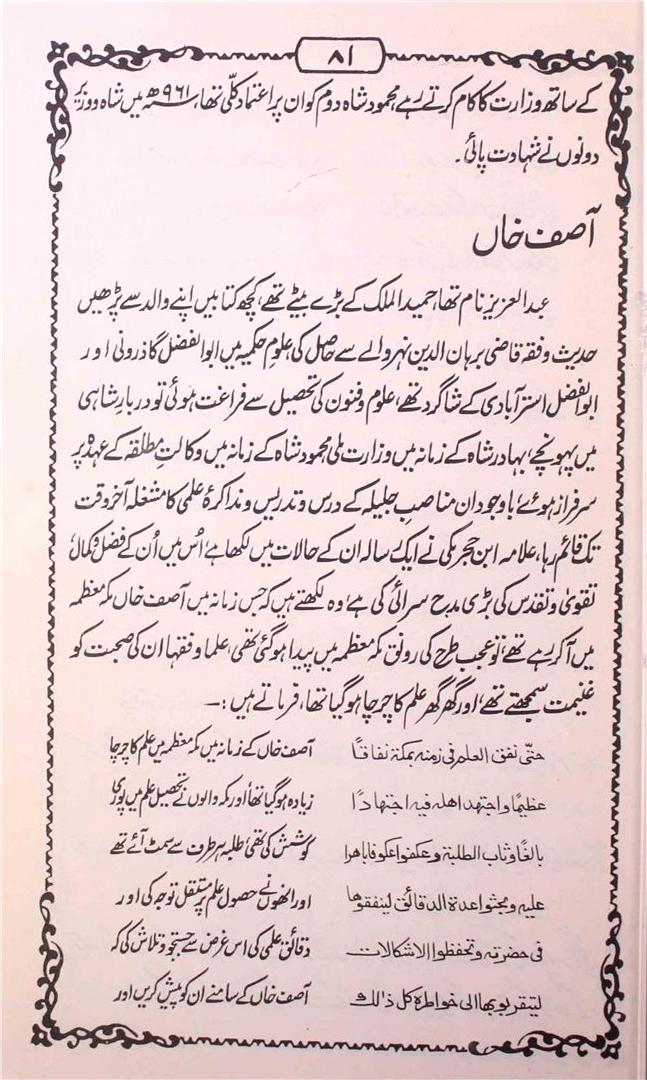 ۸۱
کے ساتھ وزارت کا کام کرتے رہے، محمود شاہ دوم کو ان پر اعتماد کلّی تھا، ۹۶۱ھ میں شاہ و وزیر
دونوں نے شہادت پائی۔
آصف خاں
عبدالعزیز نام تھا، حمید الملک کے بڑے بیٹے تھے، کچھ کتابیں اپنے والد سے پڑھیں
حدیث و فقہ قاضی برہان الدین نہروالے سے حاصل کی، علوم حکمیہ میں ابوالفضل گاذرونی اور
ابوالفضل استرآبادی کے شاگرد تھے، علوم و فنون کی تحصیل سے فراغت ہوئی تو دربار شاہی
میں پہونچے، بہادر شاہ کے زمانہ میں وزارت ملی، محمود شاہ کے زمانہ میں وکالتِ مطلقہ کے عہدہ پر
سرفراز ہوئے، باوجود ان مناصب جلیلہ کے درس و تدریس و مذاکرۂ علمی کا مشغلہ آخر وقت
تک قائم رہا، علامہ ابن حجر مکی نے ایک رسالہ ان کے حالات میں لکھا ہے، اُس میں اُن کے فضل و کمال،
تقویٰ و تقدس کی بڑی مدح سرائی کی ہے، وہ لکھتے ہیں کہ جس زمانہ میں آصف خاں مکہ معظمہ
میں آکر رہے تھے، تو عجب طرح کی رونق مکہ معظمہ میں پیدا ہوگئی تھی، علما و فقہا ان کی صحبت کو
غنیمت سمجھتے تھے، اور گھر گھر علم کا چرچا ہوگیا تھا، فرماتے ہیں :—
حتّی نفق العلم فی زمنہ بمکة نفاقًا
عظیمًا و اجتھد اھلہ فیہ اجتھادًا
بالغًا و ثاب الطلبة و عکفوا عکوفا باھرا
علیہ و بحثوا عدة الدقائق لینفقوھا
فی حضرتہ و تحفظوا الاشکالات
لیتقربوبھا الی خواطرہ کل ذالك
آصف خاں کے زمانہ میں مکہ معظمہ میں علم کا چرچا
زیادہ ہوگیا تھا اور مکہ والوں نے تحصیل علم میں پوری
کوشش کی تھی، طلبہ ہر طرف سے سمٹ آئے تھے
اور انھوں نے حصول علم پر مستقل توجہ کی اور
دقائق علمی کی اس غرض سے جستجو و تلاش کی کہ
آصف خاں کے سامنے ان کو پیش کریں اور